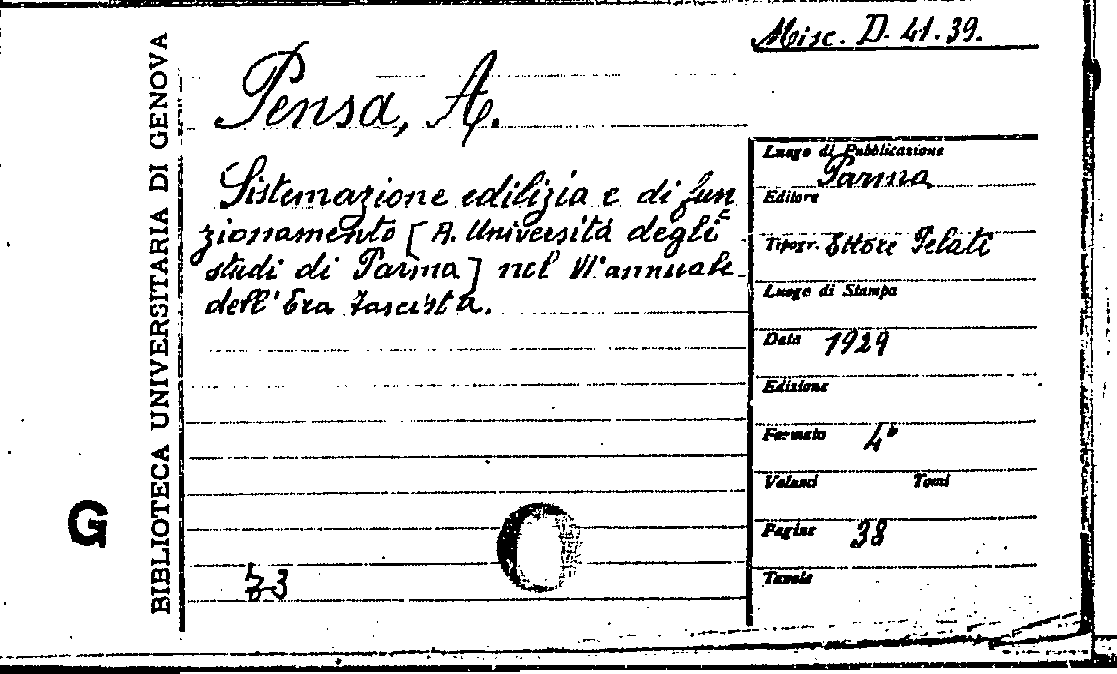 Misc. D. 41.39.
Pensa, A.
Sistemazione edilizia e di fun
zionamento [A. Università degli
studi di Parma] nel VI° annuale
dell'Era Fascista.
BIBLIOTECA UNIVERSITARIA DI GENOVA
G
Luogo di Pubblicazione
Parma
Editore
Tipogr. Ettore Pelati
Luogo di Stampa
Data 1929
Edizione
Formato 4°
Volumi Tomi
Pagine 38
Tavole